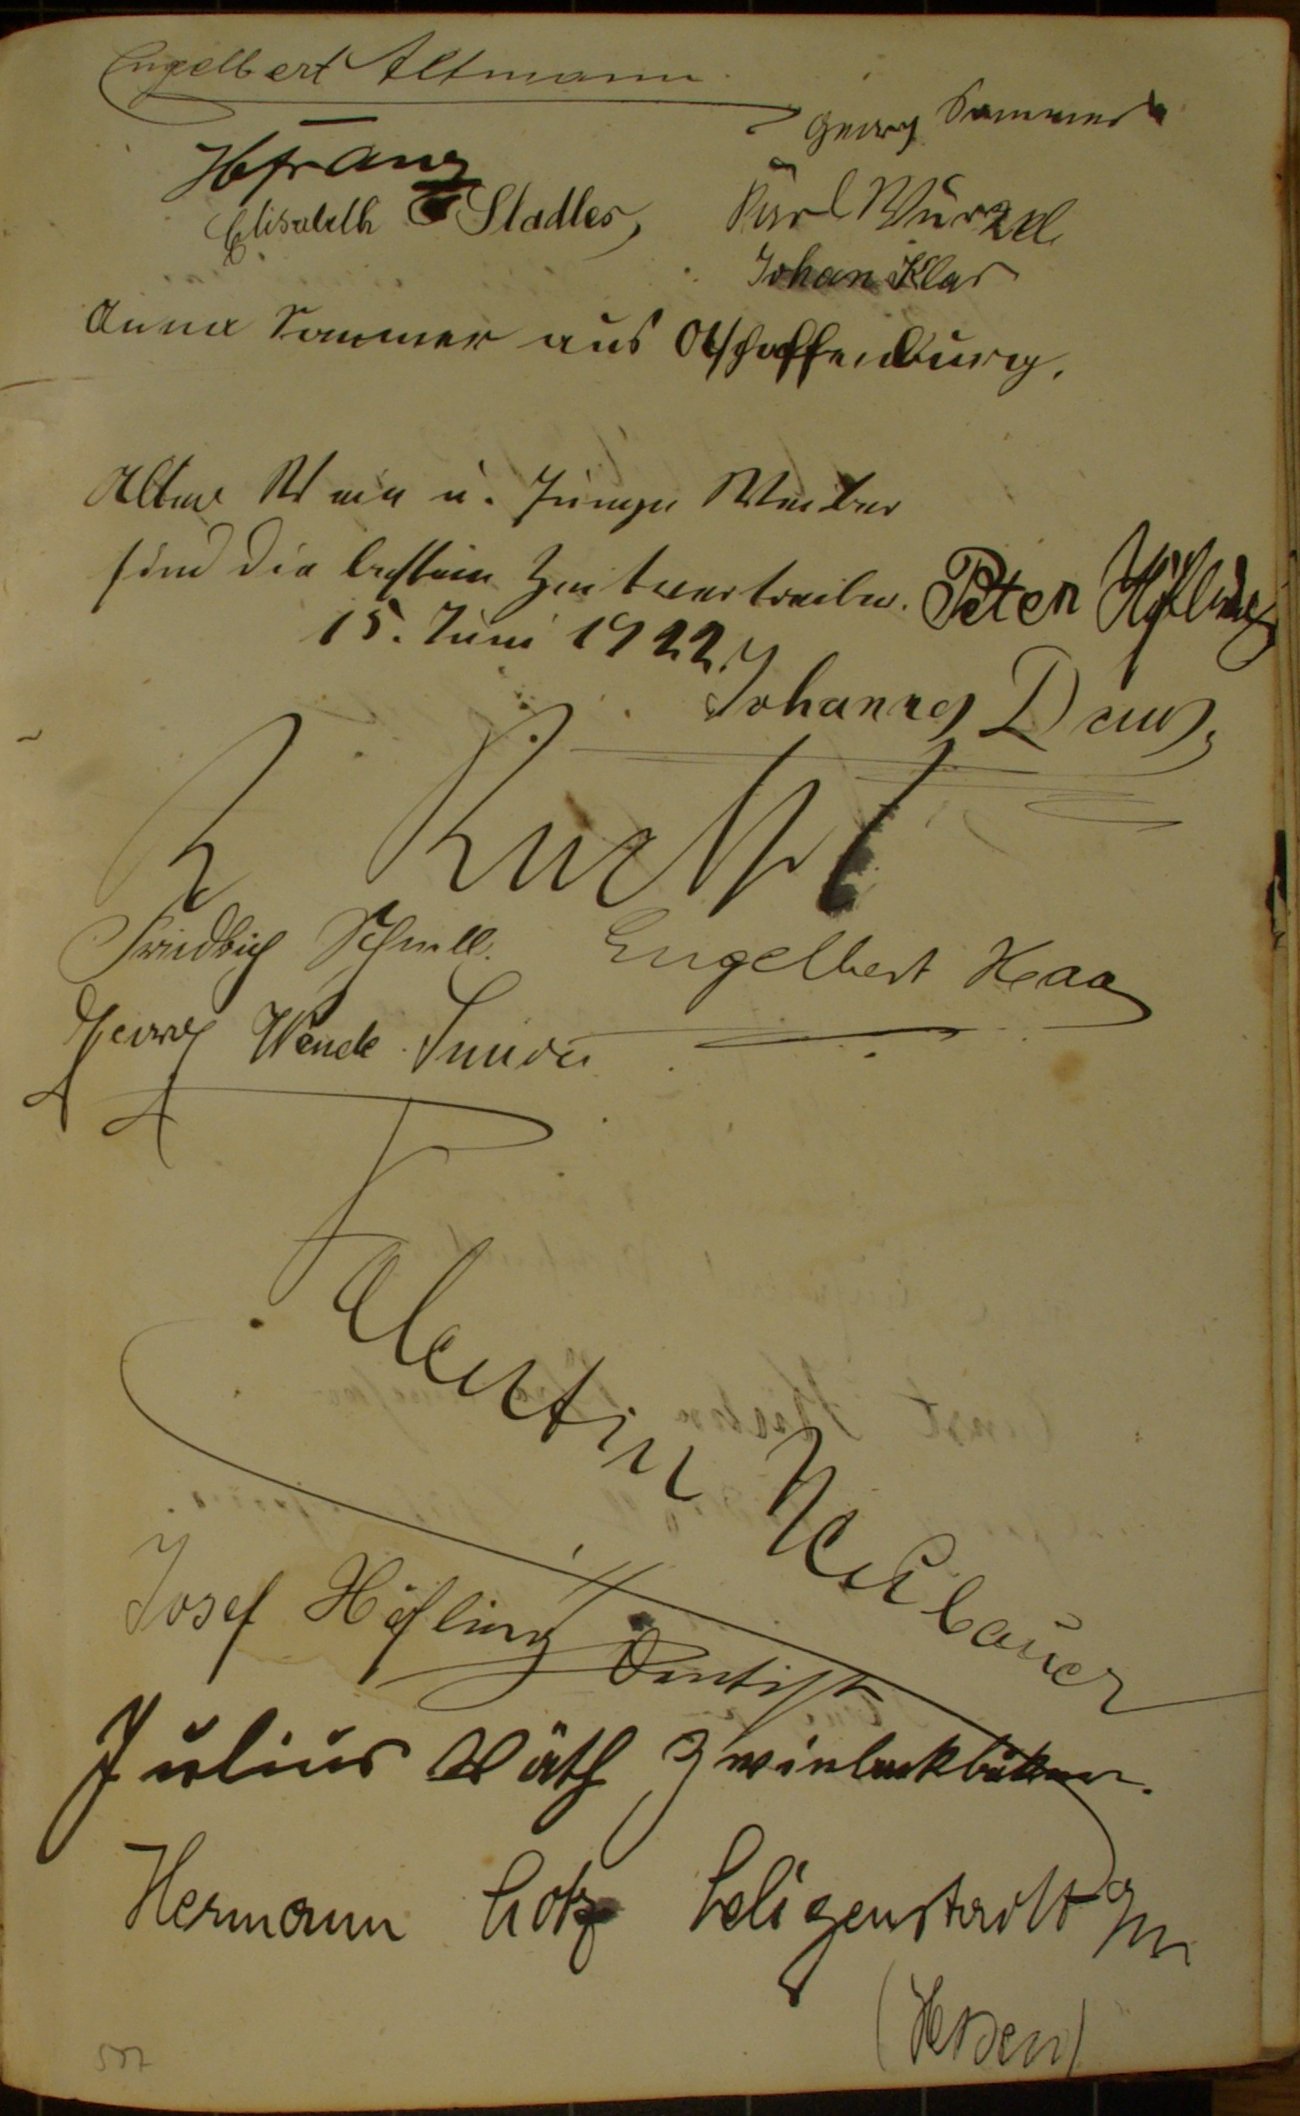 Engelbert Altmann
Georg Sommer
Elisabeth Stadler,
Karl Würzel
Johan Klar
Anna Sommer aus Aschaffenburg.
Alter Wein u. Junge Weiber
sind die besten Zeitvertreiber.
Peter Höfling
15. Juni 1922.
Johannes
Friedrich Schnell.
Engelbert Haag
Georg Wenck
Valentin Neubauer
Josef Höfling
Dentist
Julius Väth Zwiebackbäcker.
Hermann Lotz Seligenstadt
(Hessen)
507